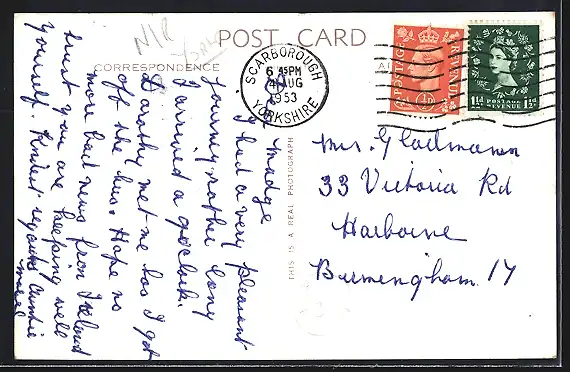 N/R
POST CARD
CORRESPONDENCE
SCARBOROUGH
6 45PM
AUG
1953
YORKSHIRE
POSTAGE
REVENUE
½D
1½d POSTAGE REVENUE 1½d
THIS IS A REAL PHOTOGRAPH
Dear Madge
I had a very pleasant
journey rather long
I arrived 9 o'clock.
Dorothy met me has I got
off the bus. Hope no
more bad news from Ireland
trust you are keeping well
yourself. Kindest regards Auntie
Mrs. Gladmann
33 Victoria Rd
Harborne
Birmingham 17